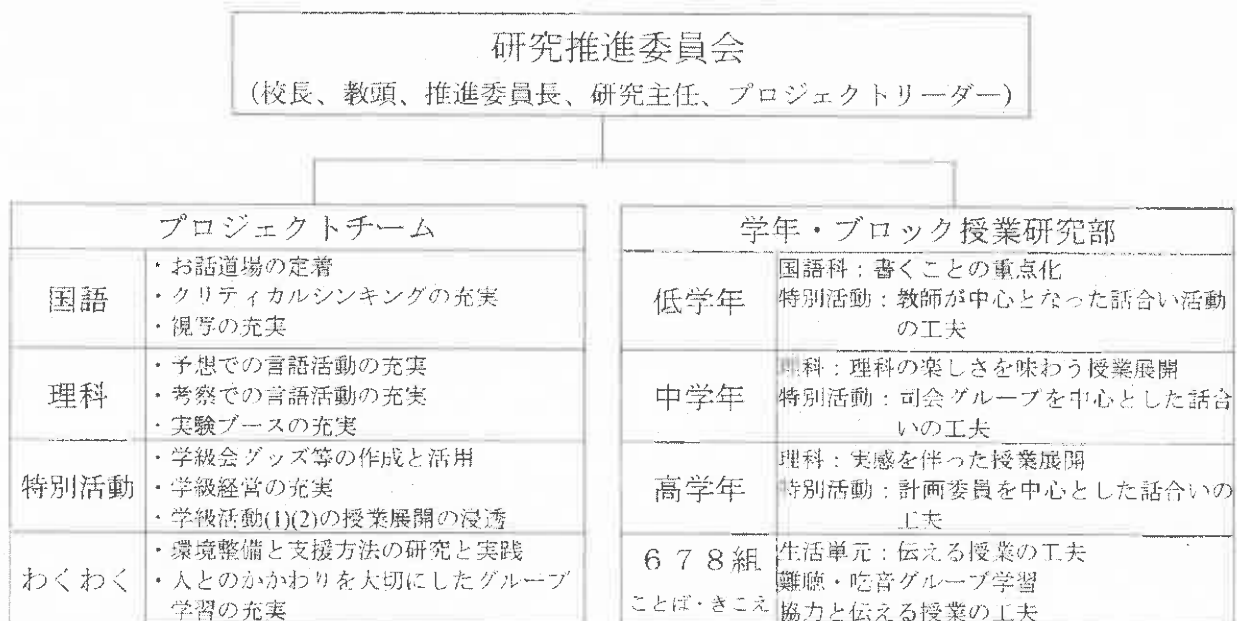 研究推進委員会
(校長、教頭、推進委員長、研究主任、プロジェクトリーダー)
プロジェクトチーム
国語
・お話道場の定着
・クリティカルシンキングの充実
・視写の充実
理科
・予想での言語活動の充実
・考察での言語活動の充実
・実験ブースの充実
特別活動
・学級会グッズ等の作成と活用
・学級経営の充実
・学級活動(1)(2)の授業展開の浸透
わくわく
・環境整備と支援方法の研究と実践
・人とのかかわりを大切にしたグループ
学習の充実
学年・ブロック授業研究部
低学年
国語科：書くことの重点化
特別活動：教師が中心となった話合い活動
の工夫
中学年
理科：理科の楽しさを味わう授業展開
特別活動：司会グループを中心とした話合
いの工夫
高学年
理科：実感を伴った授業展開
特別活動：計画委員を中心とした話合いの
工夫
６７８組
ことば・きこえ
生活単元：伝える授業の工夫
難聴・吃音グループ学習
協力と伝える授業の工夫